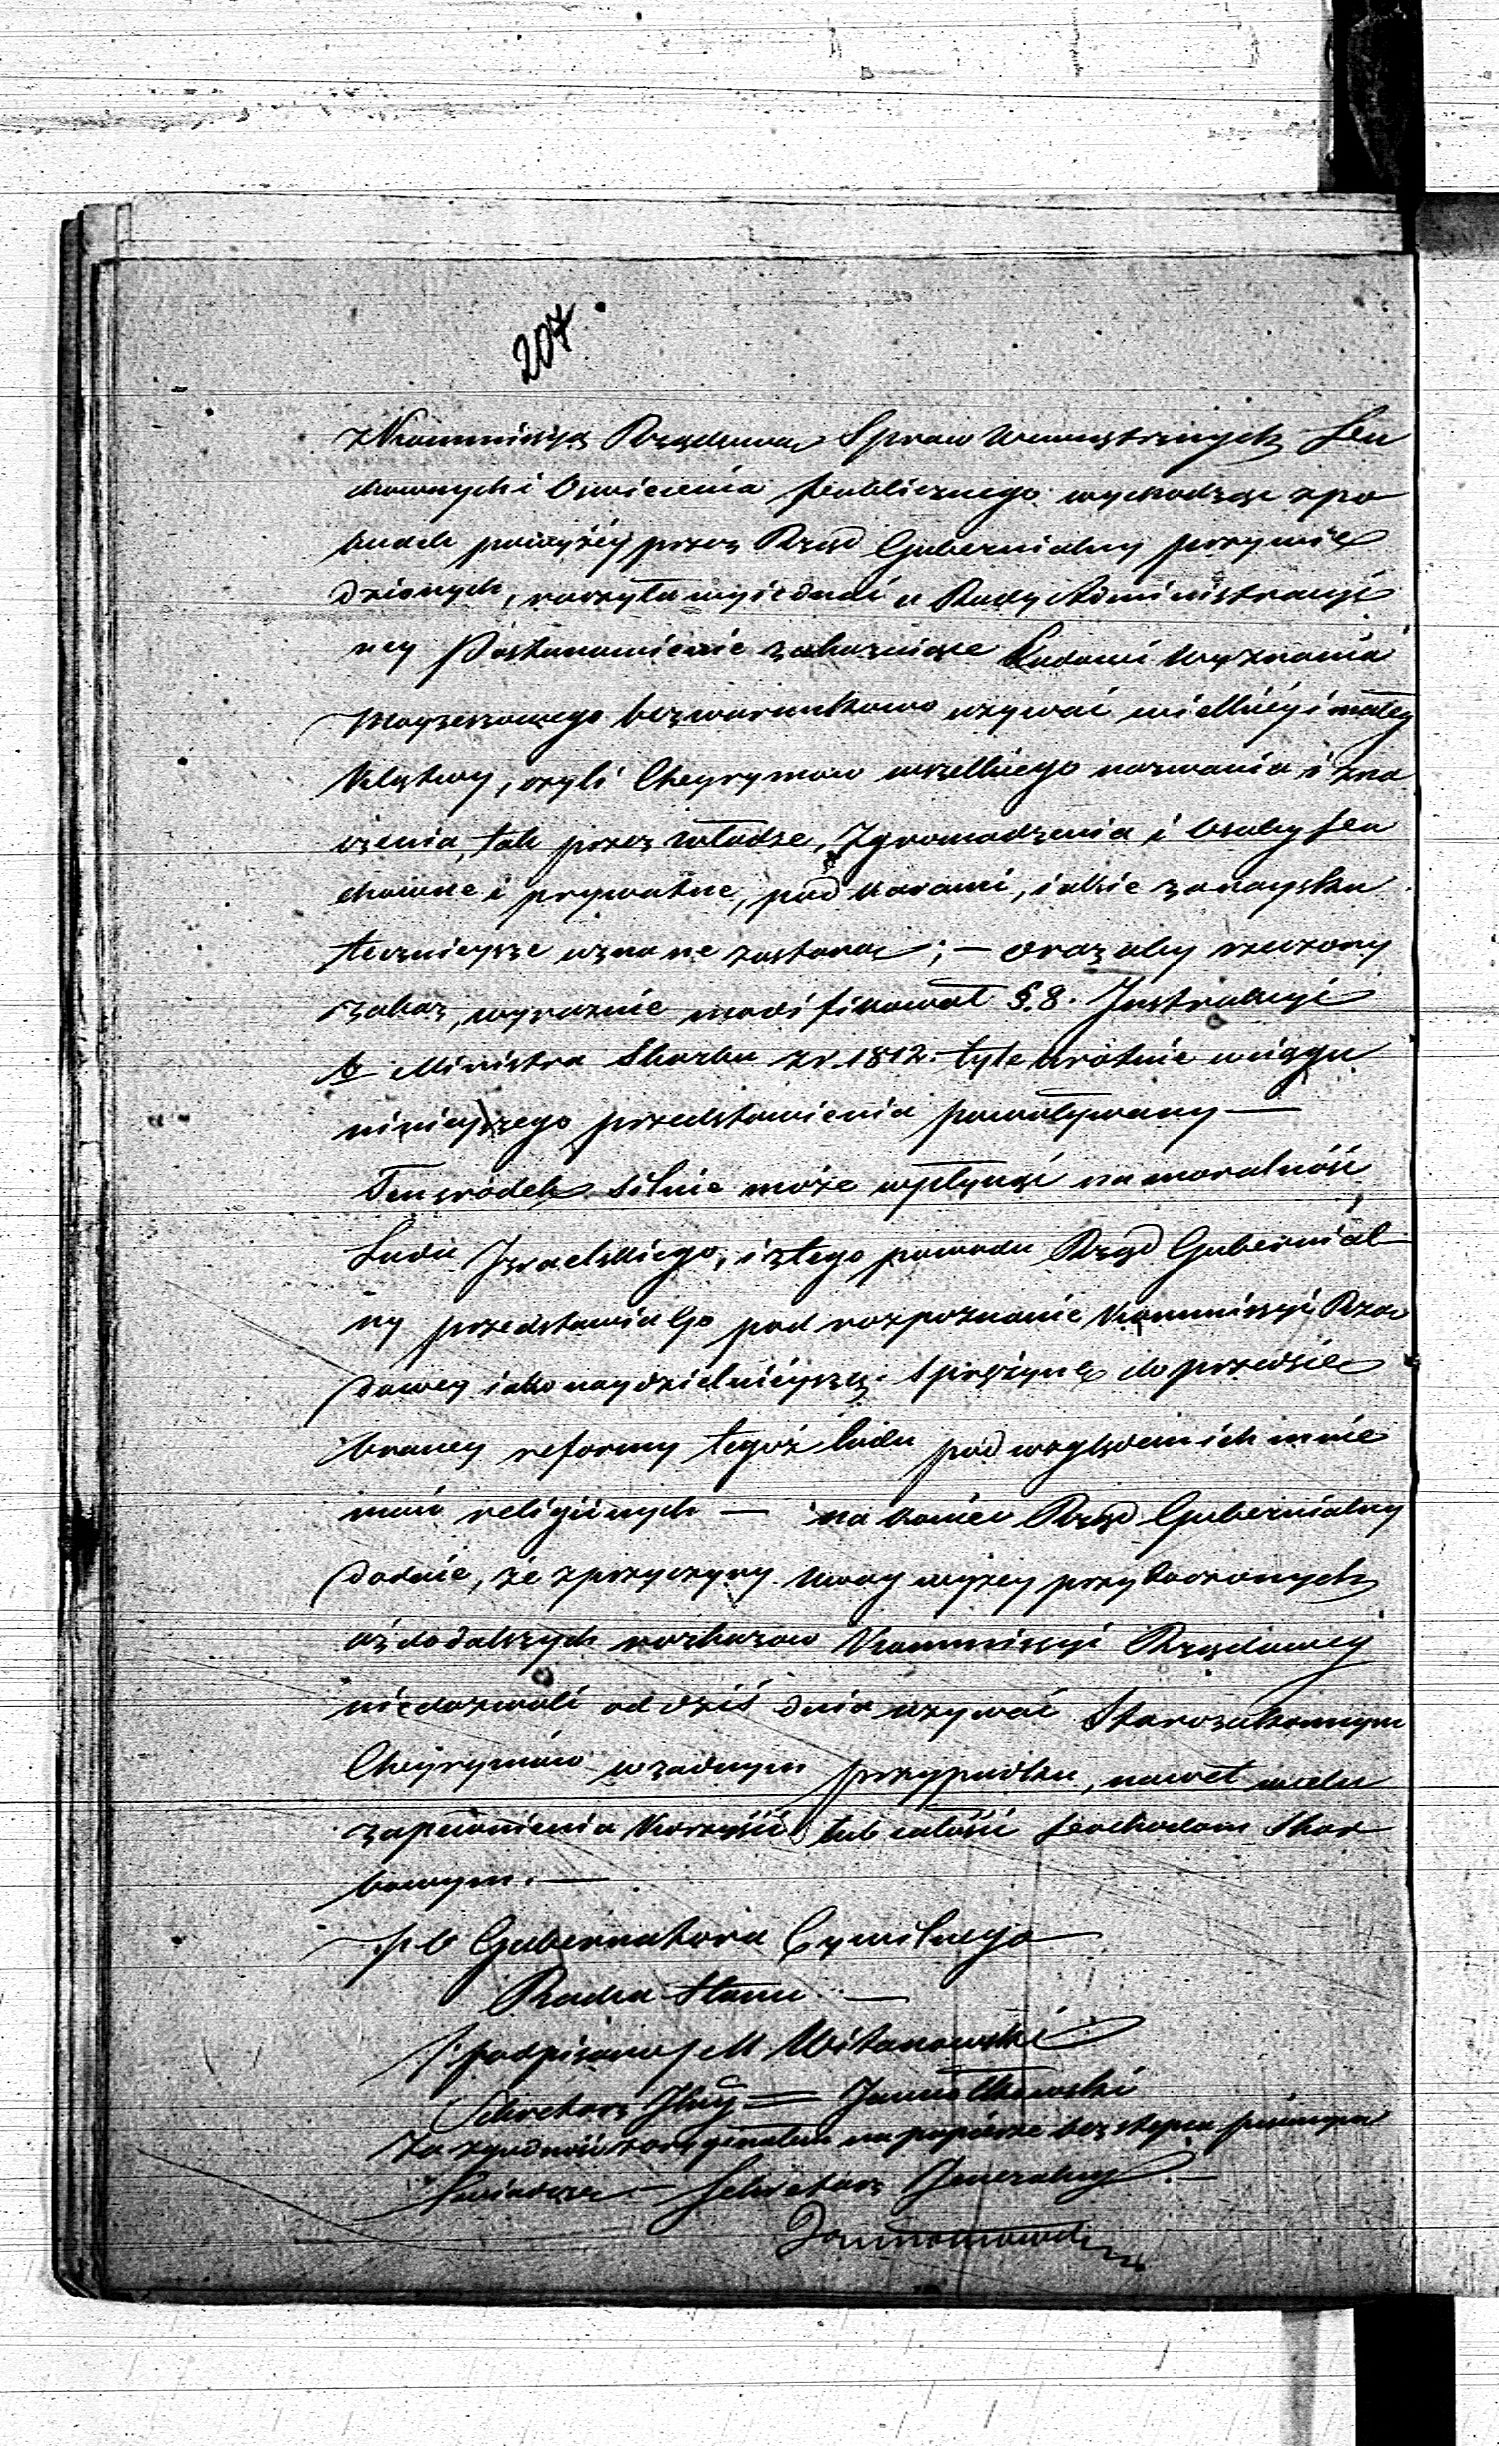 207
z Kommissyą Rządową Spraw Wewnętrznych Du
chownych i Oświecenia publicznego wychodząc z po
budek powyżéy przez Rząd Gubernialny przywie
dzionych, raczyła wyiednać u Rady Administracyi
ney Postanowienie zakazuiące Ludowi Wyznania
Moyżeszowego bezwarunkowo używać wielkiéy i małéy
Klątwy, czyli Cheyrymow wszelkiego nazwania i zna
czenia, tak przez władze, Zgromadzenia i Osoby Du
chowne i prywatne, pod karami, iakie za naysku
tecznieysze uznane zostaną; — oraz aby rzeczony
zakaz, wyraznie modifikował §. 8. Instrukcyi
b Ministra Skarbu z r. 1812. tylekrotnie w ciągu
ninieyszego przedstawienia powoływany —
Ten srodek silnie może wpłynąć na moralność
Ludu Izraelskiego, i z tego powodu Rząd Gubernial
ny przedstawia Go pod rozpoznanie Kommissyi Rzą
dowey iako naydzielnieyszą sprężynę do przedsię
braney reformy tegoż ludu pod względem ich mnie
mań religiinych — na koniec Rząd Gubernialny
dodaie, że z przyczyny uwag wyżey przytoczonych
aż do dalszych rozkazow Kommissyi Rządowey
niedozwoli od dziś dnia używać Starozakonnym
Cheyrymów w żadnym przypadku, nawet w celu
zapewnienia Korzyści lub całości dochodom Skar
bowym. —
p o Gubernatora Cywilnego
Radca Stanu —
/podpisano/ M Witanowski
Sekretarz Jlny =
Za zgodność z oryginałem na papierze bez stępla pisanym
Swiadczę — Sekretarz Jeneralny —